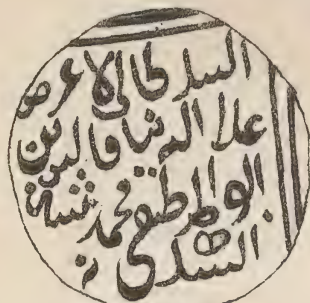 السلطان الاعظم
علا الدنيا والدين
ابو المظفر محمد شاه
السلطان